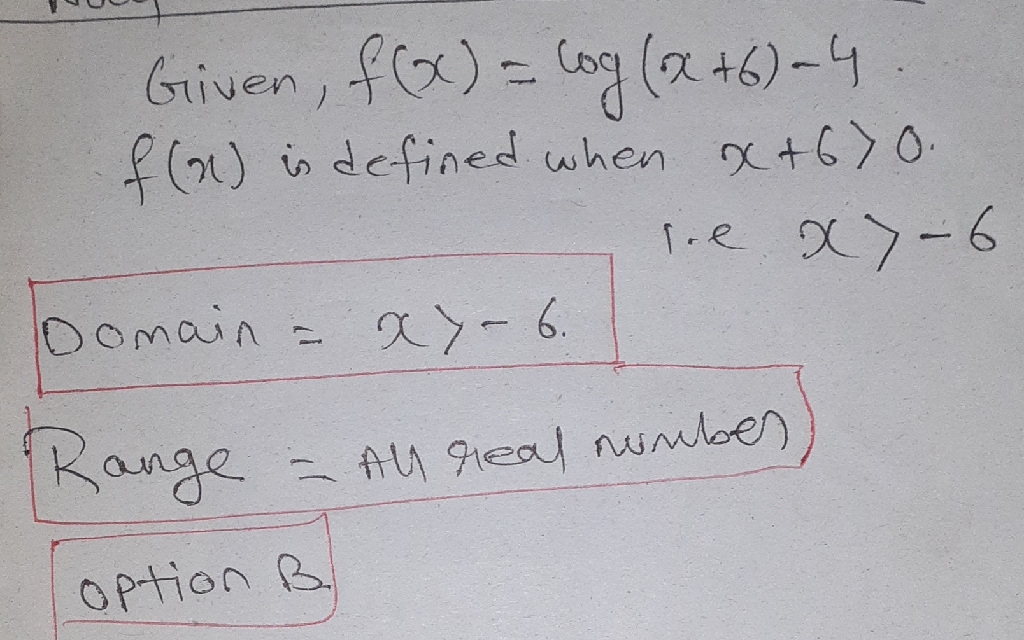 Given, f(x) = log(x+6)-4.
f(x) is defined when x+6>0.
i.e x>-6
Domain = x>-6.
Range = All real number
option B